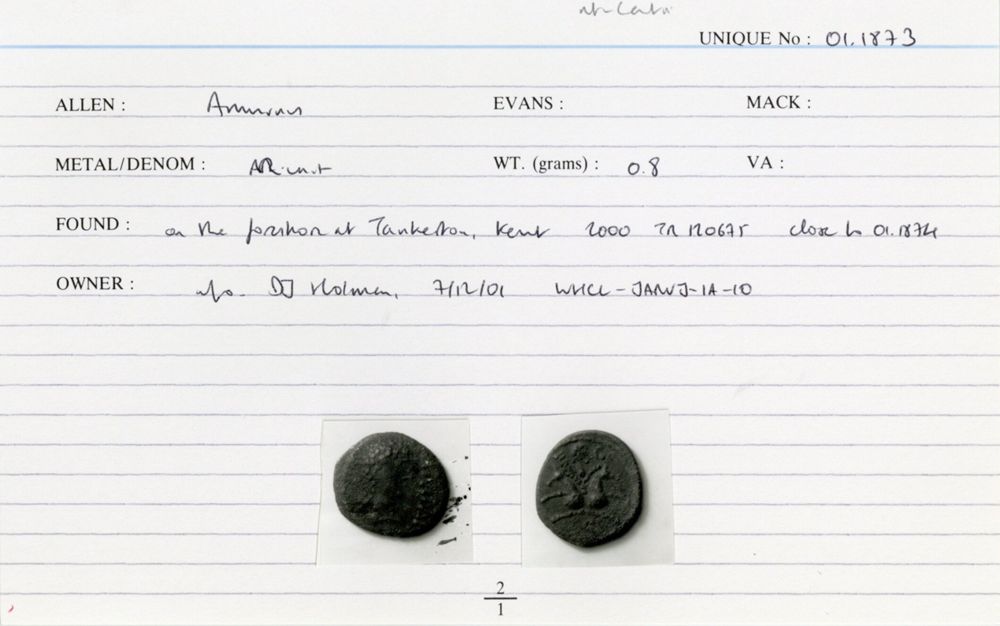 UNIQUE No : 01.1873
ALLEN : Amminus EVANS : MACK :
METAL/DENOM : AR unit WT. (grams) : 0.8 VA :
FOUND : on the foreshore at Tankerton, Kent 2000 TR 120675 close to 01.1874
OWNER : DJ Holman, 7/12/01 WHCL-JANVJ-1A-10
2
1